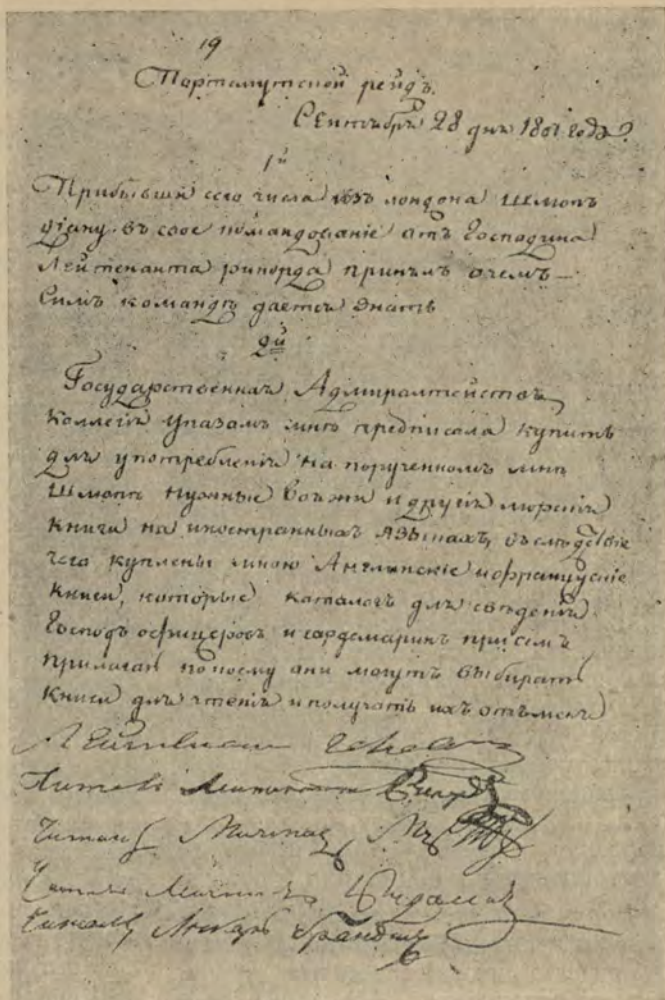 19
Портсмутской рейдъ.
Сентября 28 дня 1807 года
1й
Прибывши сего числа изъ лондона шлюпъ
діану въ свое командованіе отъ Господина
Лейтенанта рикорда принялъ очемъ—
Симъ командѣ дается знать
2й
Государственная Адмиралтействъ
Коллегія указомъ мнѣ предписала купить
для употребленія на порученномъ мнѣ
Шлюпѣ нужные вояжи и другія морскія
книги на иностранныхъ языкахъ, въ слѣдствіе
чего куплены мною Англинскіе и французскіе
книги, которые каталогъ для свѣденія
Господъ офицеровъ и гардемаринъ присемъ
прилагая покоему они могутъ выбирать
книги для чтенія и получать ихъ отъ меня
Лейтенантъ
Читалъ Лейтенантъ Рикордъ
Читалъ Мичманъ
Читалъ
Читалъ